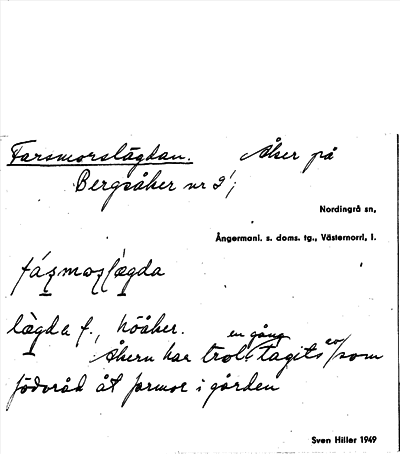 Farsmorslägdan. Åker på
Bergsåker nr 2;
Nordingrå sn,
Ångermanl. s. doms. tg., Västernorrl. l.
lægda f., höåker.
en gång av
Åkern har trol. tagits som
födoråd åt farmor i gården
Sven Hiller 1949